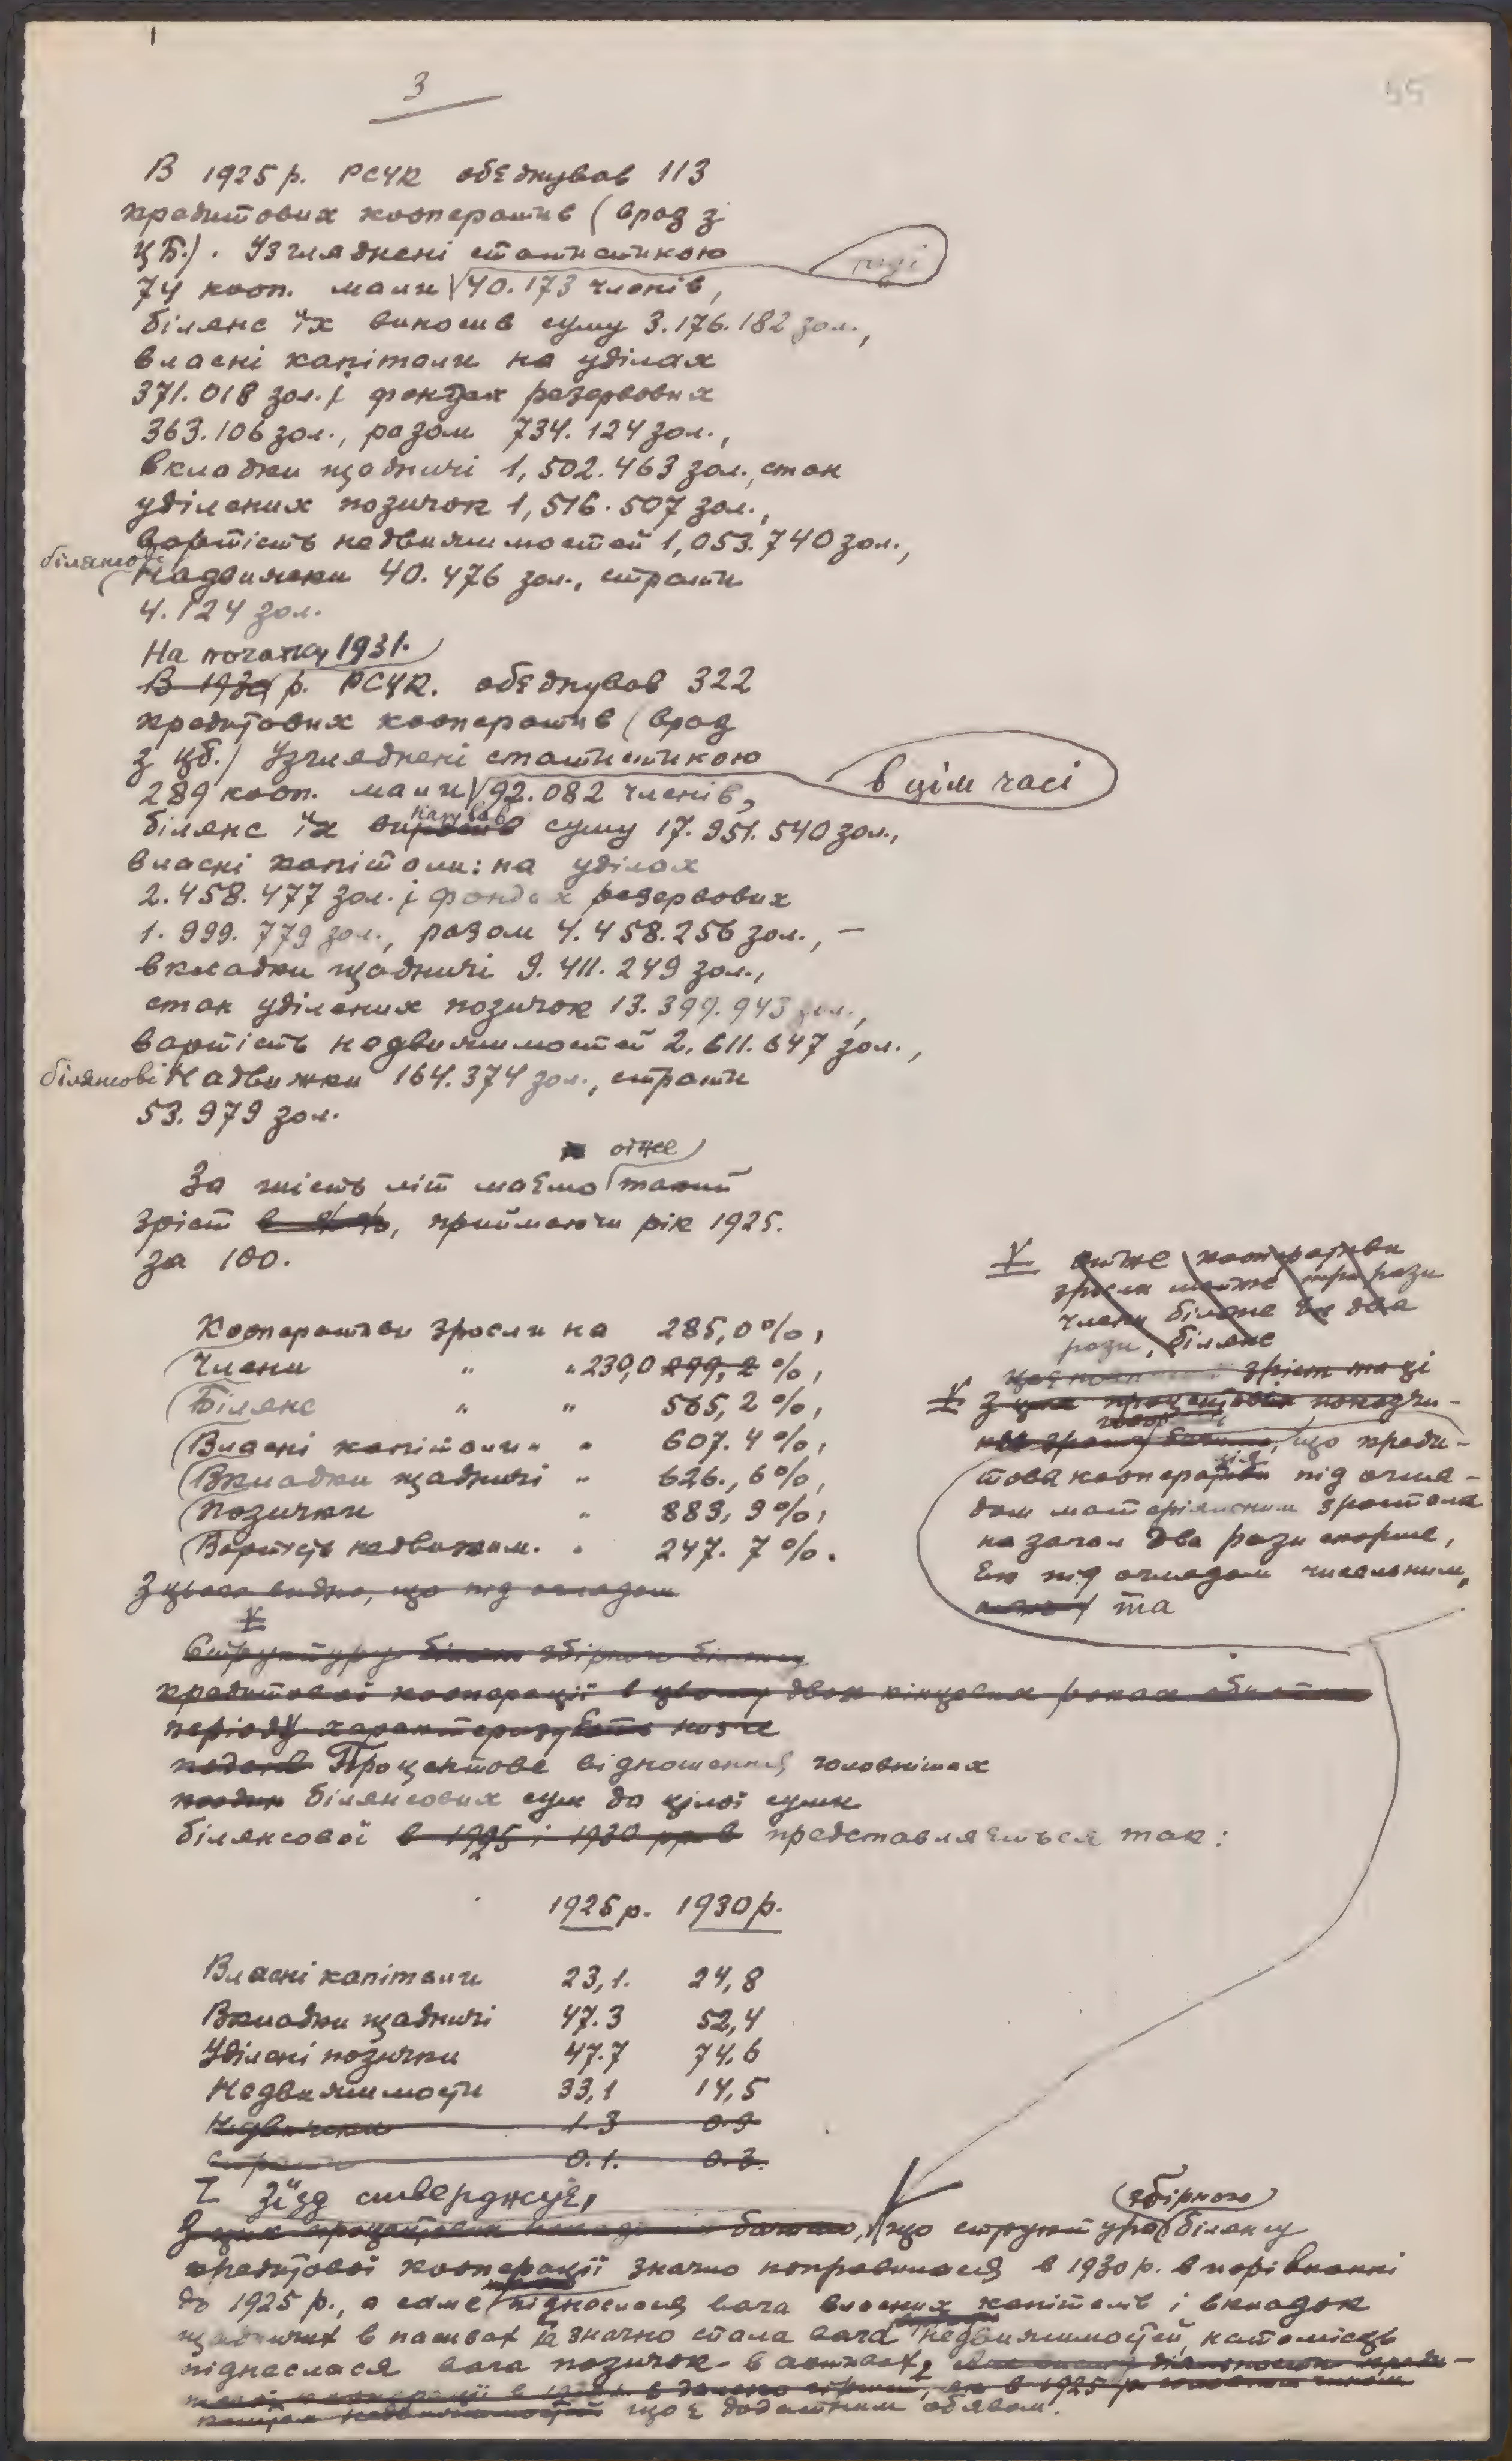 3
55
В 1925 р. РСУК обєднував 113
кредитових кооператив (враз з
ЦБ.). Узгляднені статистикою
тоді
74 кооп. мали 40.173 членів,
білянс їх виносив суму 3.176.182 зол.,
власні капітали на уділах
371.018 зол. і фондах резервових
363.106 зол., разом 734.124 зол.,
вкладки щадничі 1,502.463 зол., стан
уділених позичок 1,516.507 зол.,
вартість недвижимостей 1,053.740 зол.,
білянсові
Надвижки 40.476 зол., страти
4.124 зол.
На початку 1931.
В 1930 р. РСУК. обєднував 322
кредитових кооператив (враз
з ЦБ.) Узгляднені статистикою
в цім часі
289 кооп. мали 92.082 членів,
білянс їх суму 17.951.540 зол.,
власні капітали: на уділах
2.458.477 зол. і фондах резервових
1.999.779 зол., разом 4.458.256 зол., —
вкладки щадничі 9.411.249 зол.,
стан уділених позичок 13.399.943 зол.,
вартість недвижимостей 2.611.647 зол.,
білянсові Надвижки 164.374 зол., страти
53.979 зол.
отже
За шість літ маємо такий
зріст в %%, приймаючи рік 1925.
за 100.
Кооперативи зросли на 285,0%,
Члени " " 230,0 299,2 %,
Білянс " " 565,2 %,
Власні капітали " " 607.4 %,
Вкладки щадничі " 626.,6%,
Позички " 883,9%,
Вартість недвижим. " 247.7%.
З цього видно, що під оглядом
отже кооперативи
зросли майже три рази
члени більше як два
рази, білянс
зріст та ці
З цих процентових показчи-
ків бачимо, що креди-
това кооперація під огля-
дом матеріяльним зростала
на загал два рази скорше,
як під оглядом чисельним,
та
Структуру збірного білянсу
кредитової кооперації в двох кінцевих роках
періоду характеризують нижче
Процентове відношення головніших
білянсових сум до цілої суми
білянсової в 1925 і 1930 рр. в представляється так:
1925 р. 1930 р.
Власні капітали 23,1. 24,8
Вкладки щадничі 47.3 52,4
Уділені позички 47.7 74.6
Недвижимости 33,1 14,5
Надвижки 1.3 0.9
Страти 0.1. 0.3.
І Зїзд стверджує,
збірного
З цих процентових бачимо, що структура білянсу
кредитової кооперації значно поправилася в 1930 р. в порівнанні
до 1925 р., а саме піднеслася вага власних капіталів і вкладок
щадничих в пасивах та значно спала вага недвижимостей, натомісць
піднеслася вага позичок в активах,
в 1925 р.
що є додатним обявом.